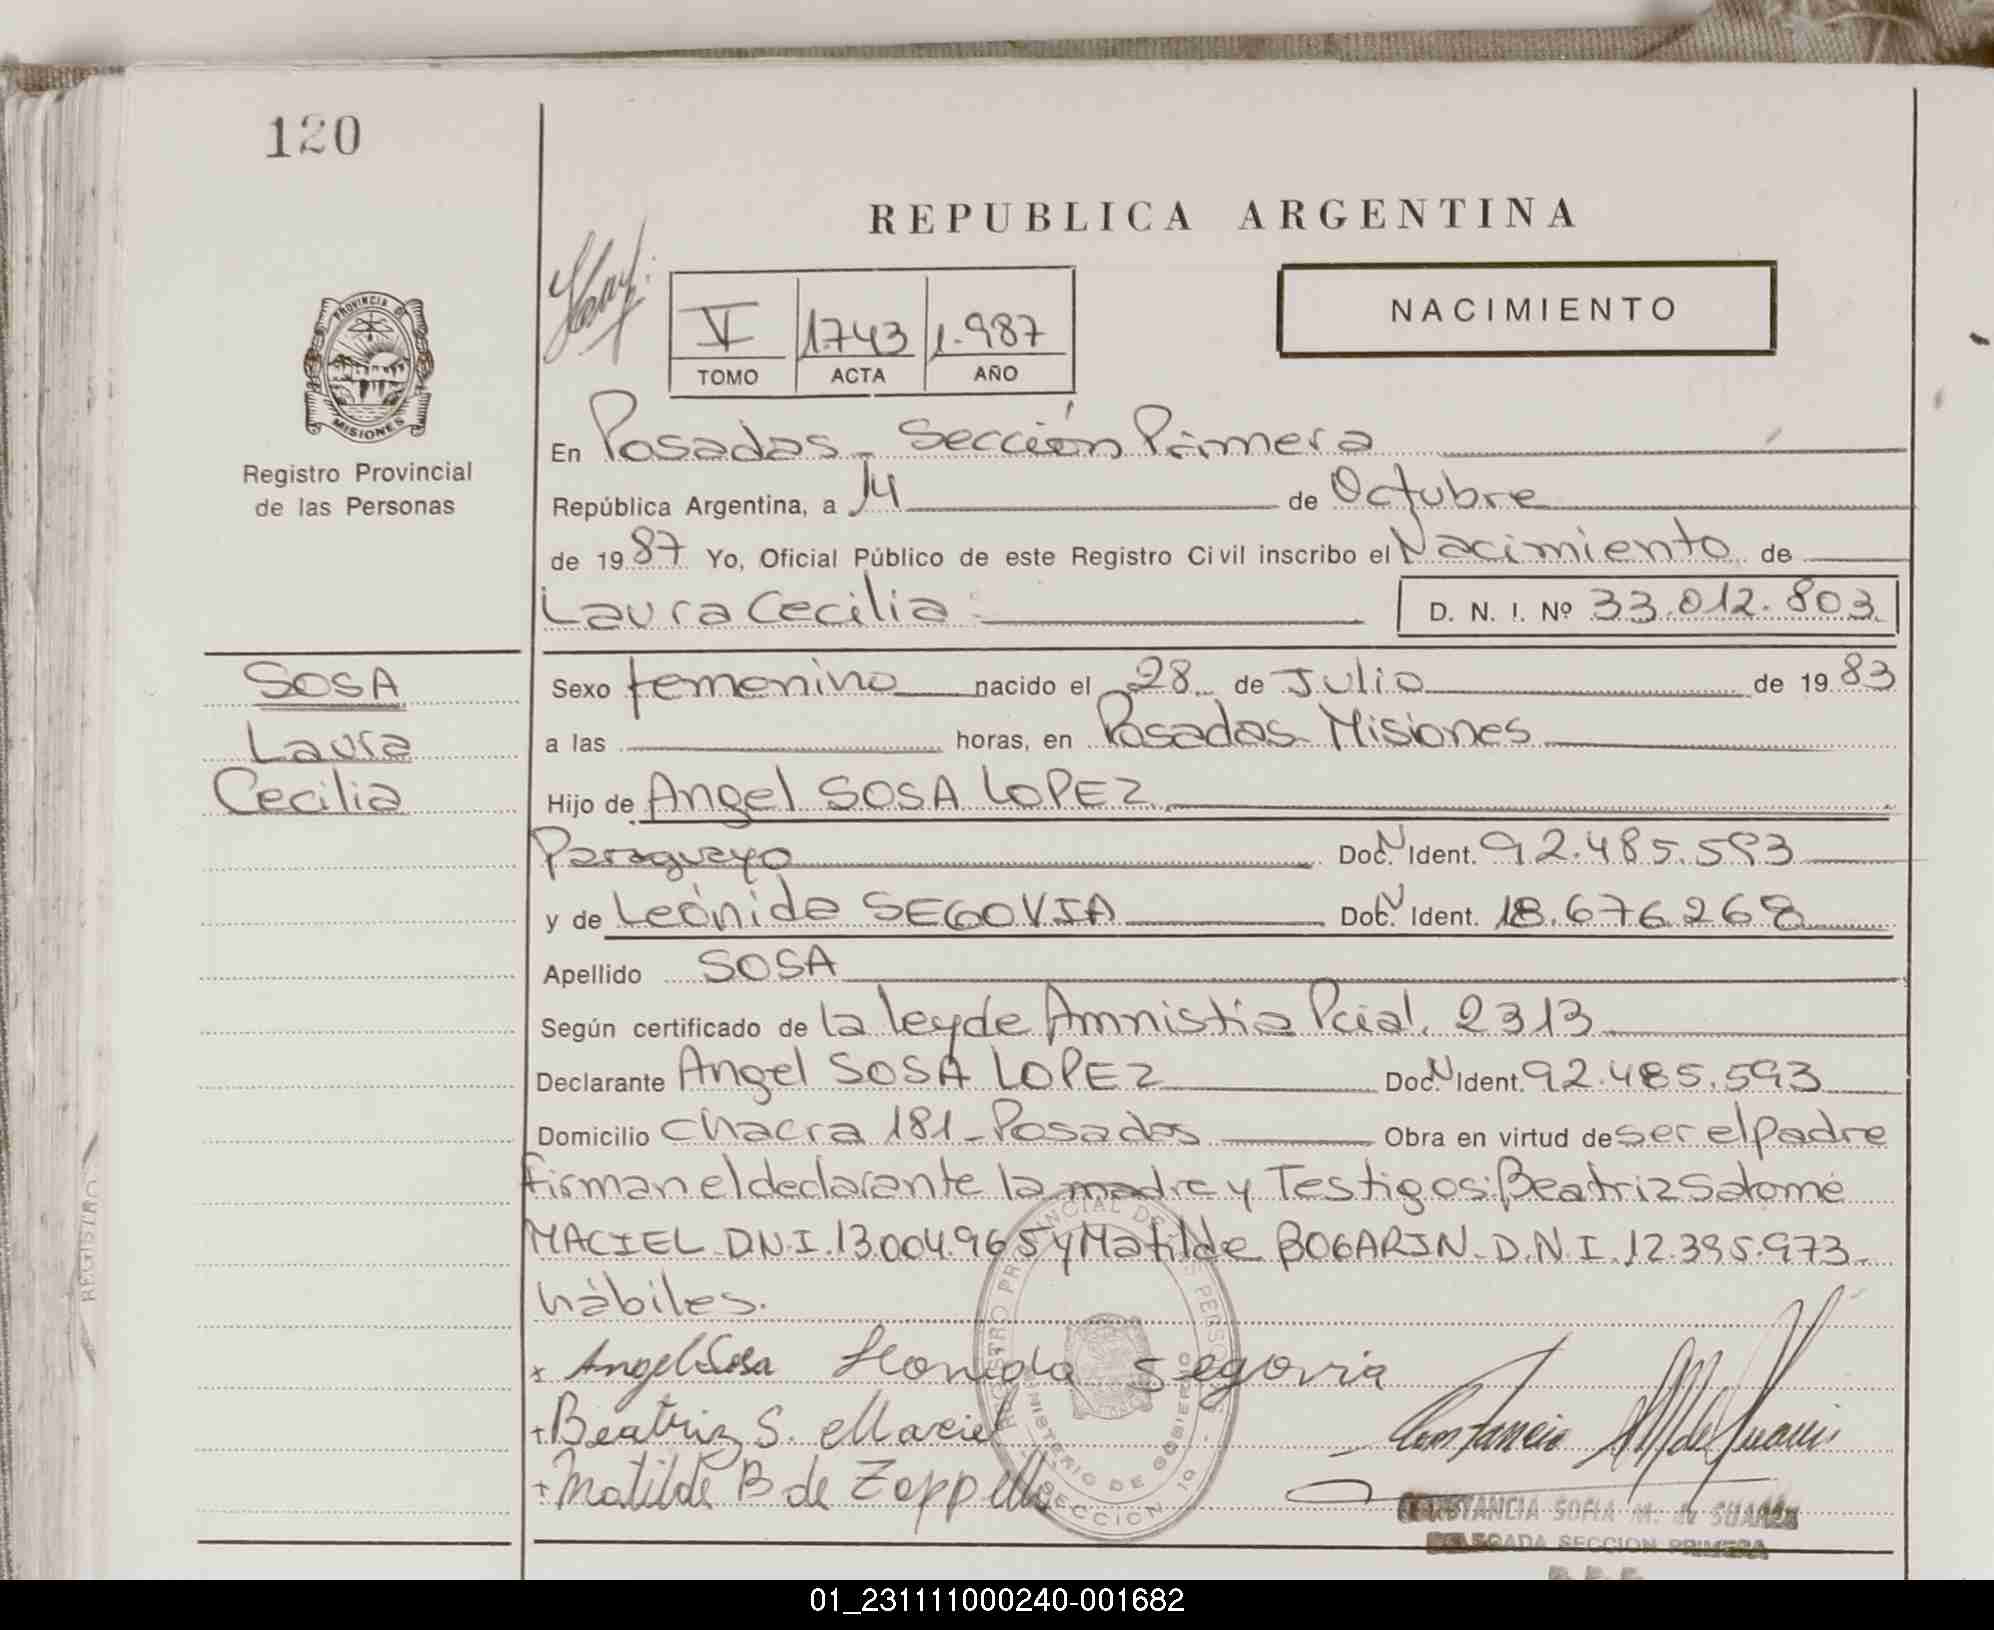 120
REPUBLICA ARGENTINA
V 1.743 1.987
TOMO ACTA AÑO
NACIMIENTO
PROVINCIA DE
MISIONES
Registro Provincial
de las Personas
En Posadas - Sección Primera
República Argentina, a 14 de Octubre
de 1987 Yo, Oficial Público de este Registro Civil inscribo el Nacimiento de
Laura Cecilia D. N. I. Nº 33.012.803
SOSA
Laura
Cecilia
Sexo femenino nacido el 28 de Julio de 1983
a las horas, en Posadas Misiones
Hijo de Angel SOSA LOPEZ
Paraguayo Doc. N Ident. 92.485.593
y de Leónida SEGOVIA Doc. N Ident. 18.676.268
Apellido SOSA
Según certificado de la ley de Amnistía Pcial. 2313
Declarante Angel SOSA LOPEZ Doc. N Ident. 92.485.593
Domicilio Chacra 181 - Posadas Obra en virtud de ser el padre
firman el declarante la madre y Testigos: Beatriz Salomé
MACIEL D.N.I. 13.004.965 y Matilde BOGARIN - D.N.I. 12.395.973 -
hábiles.
x Angel Sosa Leonida Segovia
+ Beatriz S. Maciel
+ Matilde B de Zoppella
REGISTRO PROVINCIAL DE LAS PERSONAS
MINISTERIO DE GOBIERNO
SECCION 1º
CONSTANCIA SOFIA M. de SUAREZ
DELEGADA SECCION PRIMERA
REGISTRO
01_231111000240-001682